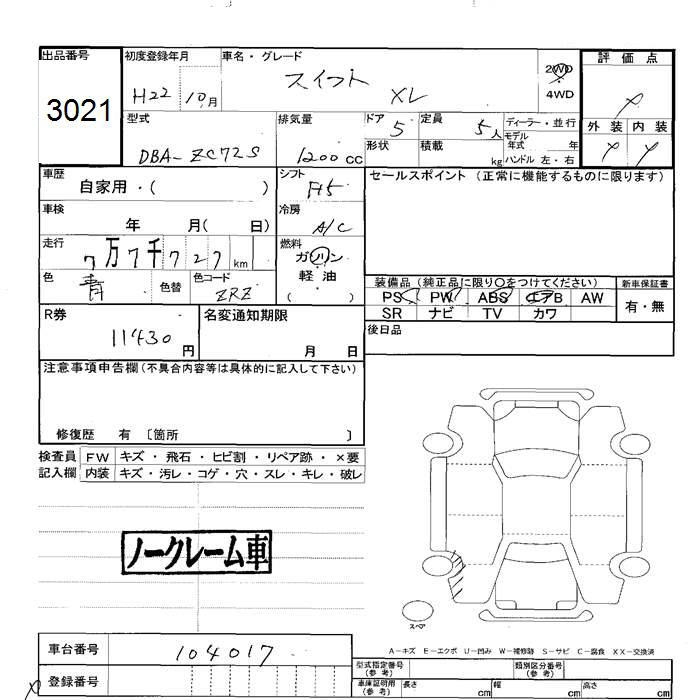 出品番号
3021
初度登録年月
H22 10月
車名・グレード
スイフト
XL
2WD
4WD
評 価 点
外 装 内 装
型式
DBA-ZC72S
排気量
1200 CC
ドア
5
定員
5人
ディーラー・並行
モデル
年式 年
形状
積載
kg
ハンドル 左・右
車歴
自家用・( )
シフト
F5
セールスポイント (正常に機能するものに限ります)
車検
年 月( 日)
冷房
A/C
走行
7万7千727km
燃料
ガソリン
・
軽 油
( )
色
青
色替
色コード
ZRZ
装備品 (純正品に限り〇をつけてください)
新車保証書
PS PW ABS エアB AW
有・無
SR ナビ TV カワ
R券
11430円
名変通知期限
月 日
後日品
注意事項申告欄 (不具合内容等は具体的に記入して下さい)
修復歴 有 〔箇所 〕
検査員 FW キズ・飛石・ヒビ割・リペア跡・×要
記入欄 内装 キズ・汚レ・コゲ・穴・スレ・キレ・破レ
ノークレーム車
スペア
A-キズ E-エクボ U-凹み W-補修跡 S-サビ C-腐食 XX-交換済
車台番号
104017
登録番号
型式指定番号
(参 考)
類別区分番号
(参 考)
車庫証明用
(参 考)
長さ
cm
幅
cm
高さ
cm